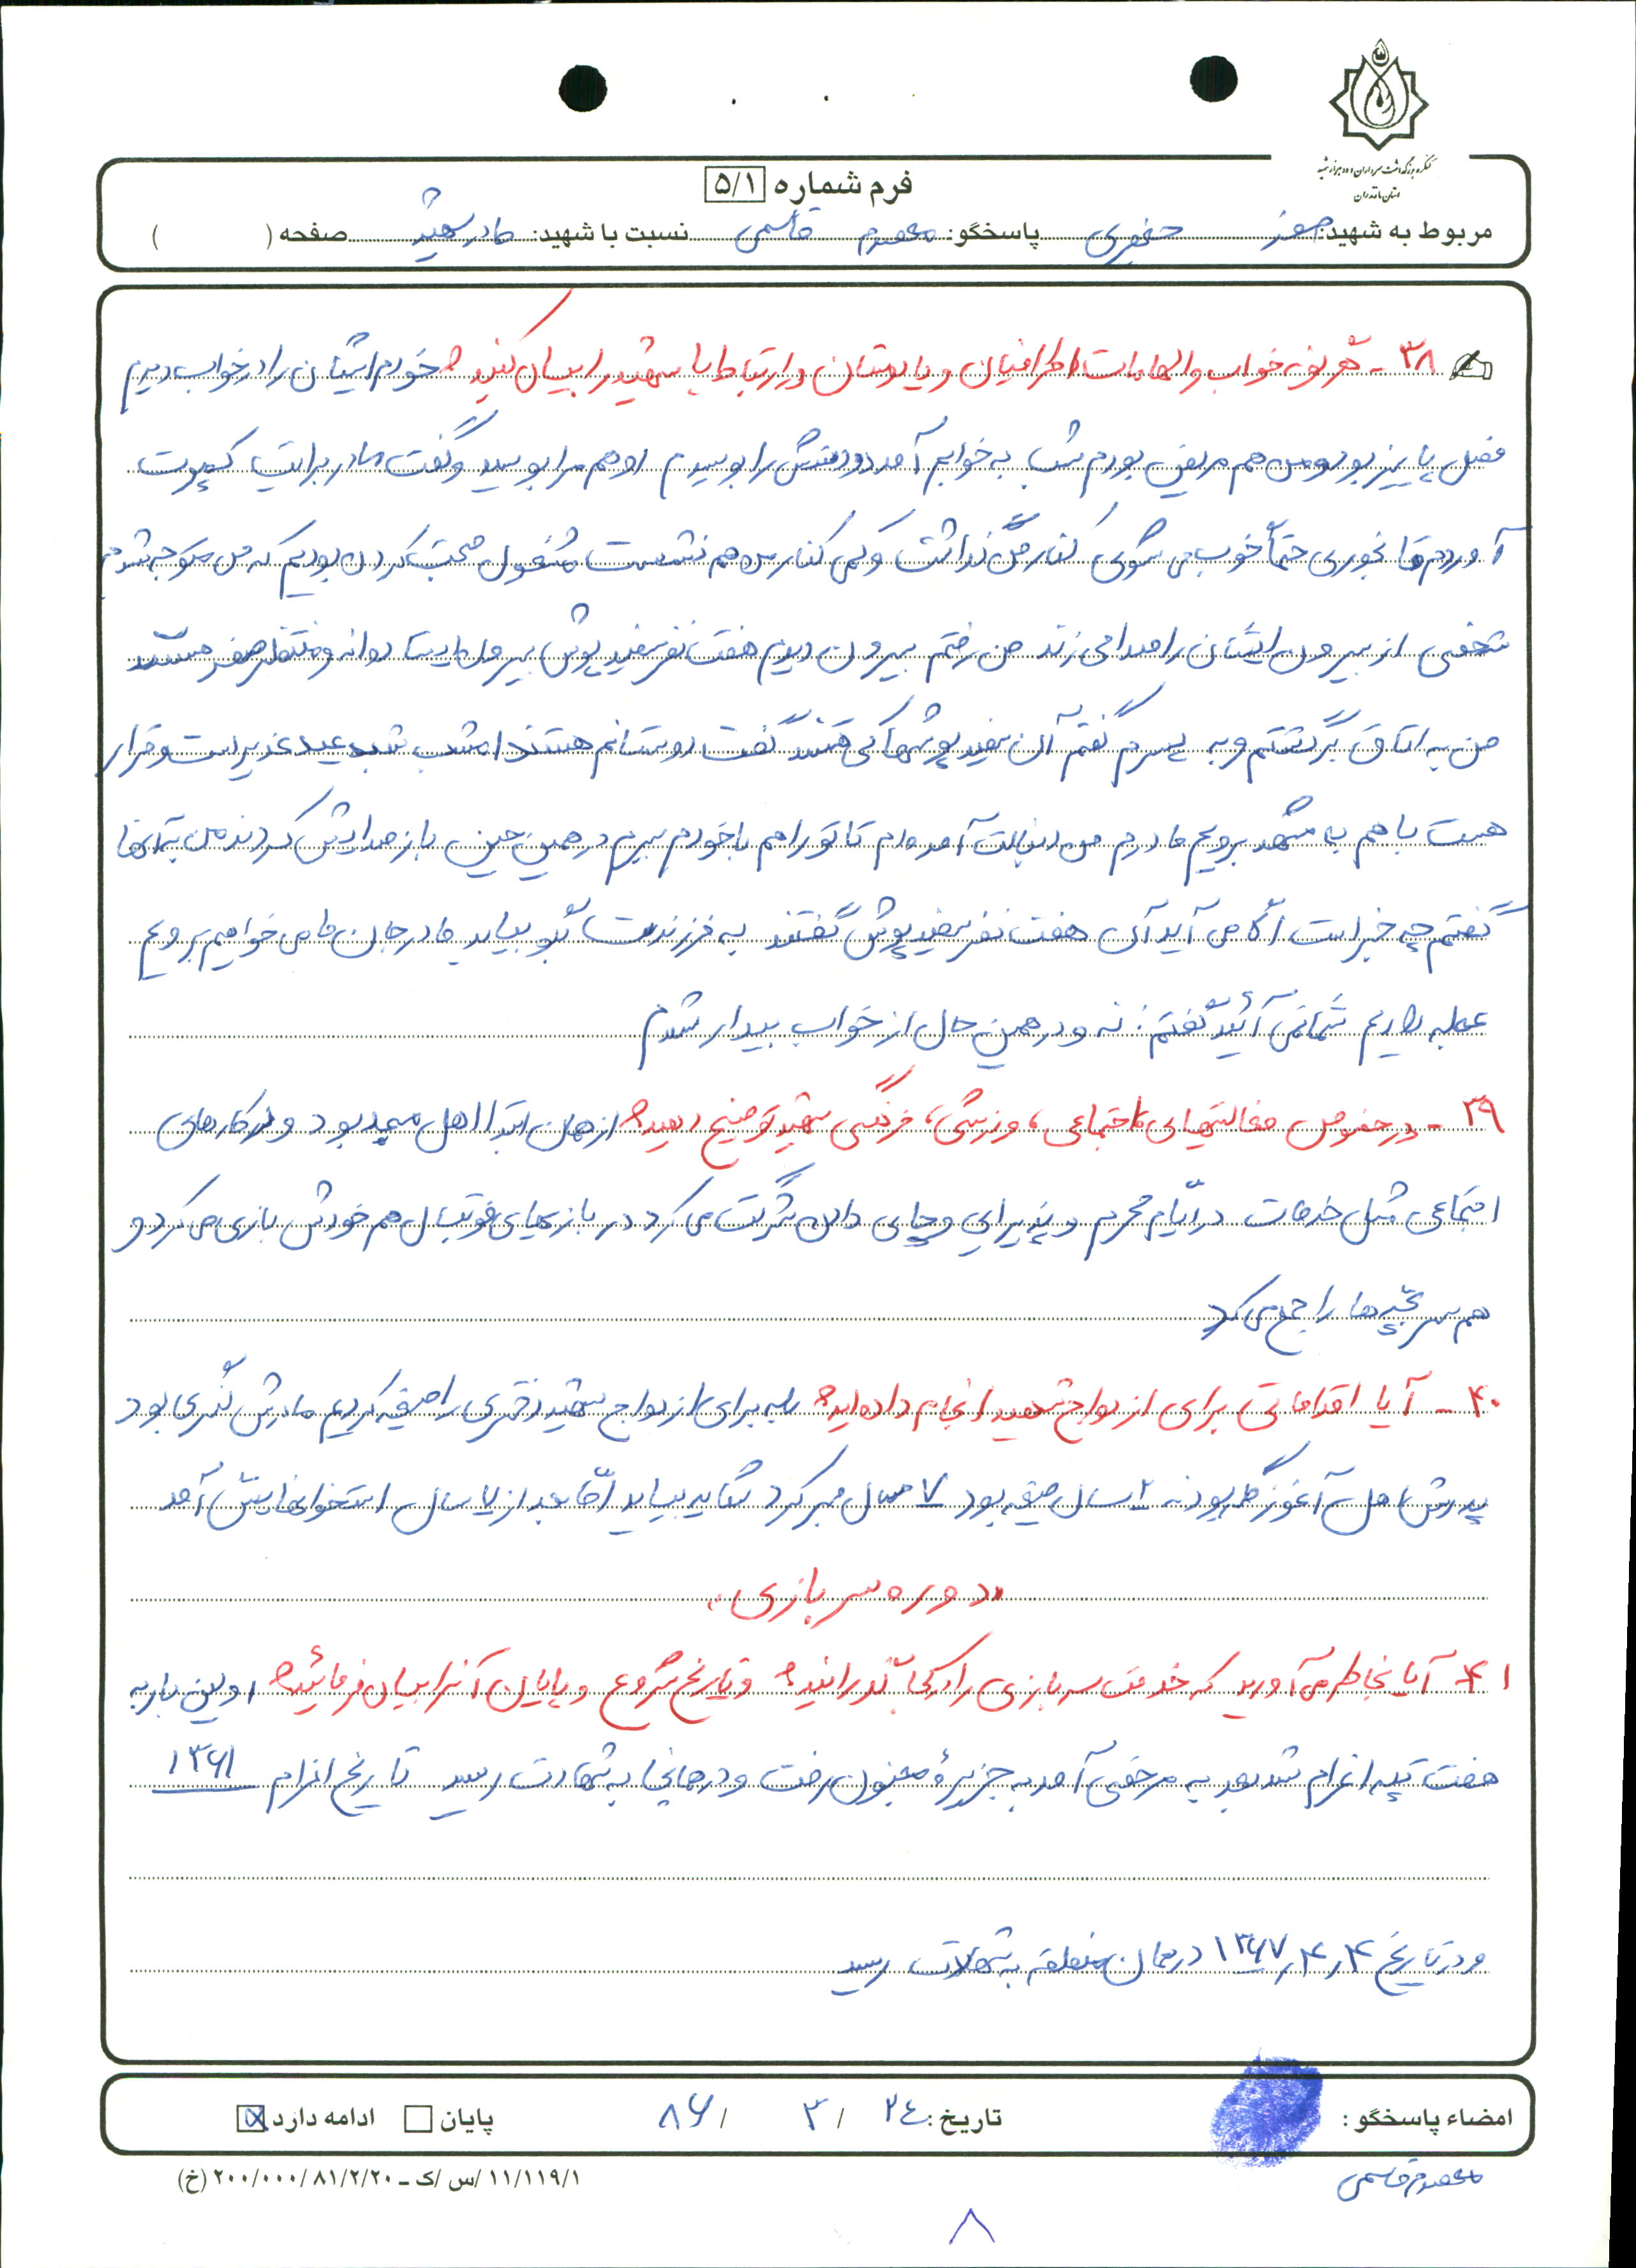 کنگره بزرگداشت سرداران و ده هزار شهید
استان مازندران
فرم شماره ۵/۱
مربوط به شهید: صفر جعفری پاسخگو: معصومه قاسمی نسبت با شهید: مادر شهید صفحه ( )
۳۸ - تعریف خواب و الهامات اطرافیان و یا دوستان در ارتباط با شهید را بیان کنید؟ خودم ایشان را در خواب دیدم
فصل پاییز بود و من هم مریض بودم شب به خوابم آمد دو دستش را بوسیدم او هم مرا بوسید و گفت مادر برایت کمپوت
آوردم تا بخوری حتماً خوب می شوی کنار من گذاشت و کمی کنار من هم نشست مشغول صحبت کردن بودیم که من متوجه شدم
شخصی از بیرون ایشان را صدا می زند من رفتم بیرون دیدم هفت نفر سفید پوش بیرون ایستاده اند و منتظر صفر هستند
من به اتاق برگشتم و به پسرم گفتم آن سفید پوشها کی هستند گفت دوستانم هستند امشب شب عید غدیر است و قرار
هست با هم به مشهد برویم مادرم من دنبالت آمده ام تا تو را هم با خودم ببرم در همین حین باز صدایش کردند من به آنها
گفتم چه خبر است الآن می آید آن هفت نفر سفید پوش گفتند به فرزندت بگو بیاید مادر جان ما می خواهیم برویم
عجله داریم شما نمی آئید گفتم: نه و در همین حال از خواب بیدار شدم
۳۹ - در خصوص فعالیتهای اجتماعی، ورزشی، فرهنگی شهید توضیح دهید؟ از همان ابتدا اهل مسجد بود و در کارهای
اجتماعی مثل خدمات در ایّام محرم و پذیرایی و چای دادن شرکت می کرد در بازیهای فوتبال هم خودش بازی می کرد و
هم سر بچّه ها را جمع می کرد
۴۰ - آیا اقداماتی برای ازدواج شهید انجام داده اید؟ بله برای ازدواج شهید دختری را صیغه کردیم مادرش نُکری بود
پدرش اهل آغوزگله بود نه ۲ سال صیغه بود ۷ سال صبر کرد شاید بیاید امّا بعد از ۷ سال استخوانهایش آمد
«دوره سربازی»
۴۱ - آیا بخاطر می آورید که خدمت سربازی را در کجا گذرانید؟ و تاریخ شروع و پایان آنرا بیان فرمائید؟ اولین بار به
هفت تپه اعزام شد بعد به مرخصی آمد به جزیرۀ مجنون رفت و در همانجا به شهادت رسید تاریخ اعزام ۱۳۶۱
و در تاریخ ۱۳۶۷٫۴٫۴ در همان منطقه به شهادت رسید
امضاء پاسخگو : تاریخ: ۲۴ / ۳ / ۸۶ پایان ادامه دارد
معصومه قاسمی
۱۱/۱۱۹/۱ /س /ک ـ ۲۰۰/۰۰۰/ ۸۱/۲/۲۰ (خ)
۸